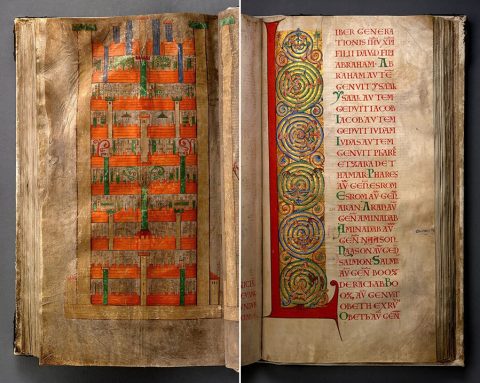 LIBER GENERA
TIONIS IHV XPI
FILII DAVID FILII
ABRAHAM · AB
RAHAM AVTE
GENVIT YSAAC
YSAAC AVTEM
GENVIT IACOB
IACOB AVTEM
GENVIT IVDAM
IVDAS AVTEM
GENVIT PHARE
ET ZARA DE T
HAMAR PHARES
AV GEN ESROM
ESROM AV GEN
ARAN ARAN AV
GEN AMINADAB
AMINADAB AV
GEN NAASON
NAASON AV GEN
SALMON SALMO
AV GEN BOOZ
DE RACIAB BO
OZ AV GENVIT
OBETH EX RV
OBETH AV GEN